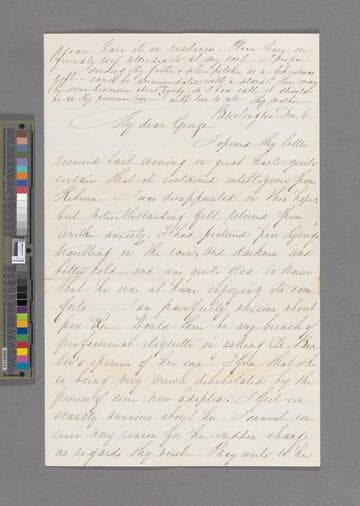 please have it in readiness - Please have
friendly roof attended to at my cost - I propose
sending thy father's silver pitcher as a Christmas
gift - can it be accommodated with a stand? There may
be some discussion about
be in thy possession now - with love to all thy mother
Burlington Dec 6.
My dear George
I opened thy letter
received last evening in great haste quite
certain that it contained intelligence from
Rebecca - I was disappointed in this hope,
but notwithstanding felt relieved from
another anxiety. I had pictured poor George
travelling in the rain, and darkness and
bitter cold - and was quite glad to know
that he was at home enjoying its com
forts - I am painfully anxious about
poor R. Would there be any breach of
professional etiquette in asking Dr
opinion of her case? I fear that she
is being very much debilitated by the
process of cure now adopted. I feel con
stantly anxious about her I cannot con
ceive any reason for her sudden change
as regards thy visit - Pray write to her